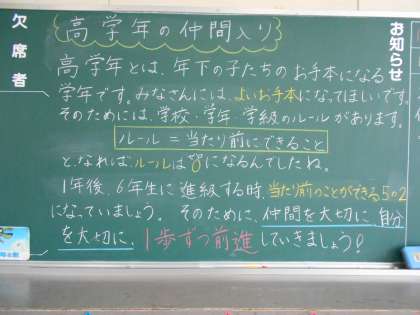 欠席者
お知らせ
高学年の仲間入り
高学年とは、年下の子たちのお手本になる
学年です。みなさんには、よいお手本になってほしいです。
そのためには、学校・学年・学級のルールがあります。
ルール＝当たり前にできること
と、なれば、ルールは"0"になるんでしたね。
1年後、6年生に進級する時、当たり前のことができる5の2
になっていましょう。そのために、仲間を大切に、自分
を大切に、1歩ずつ前進していきましょう！